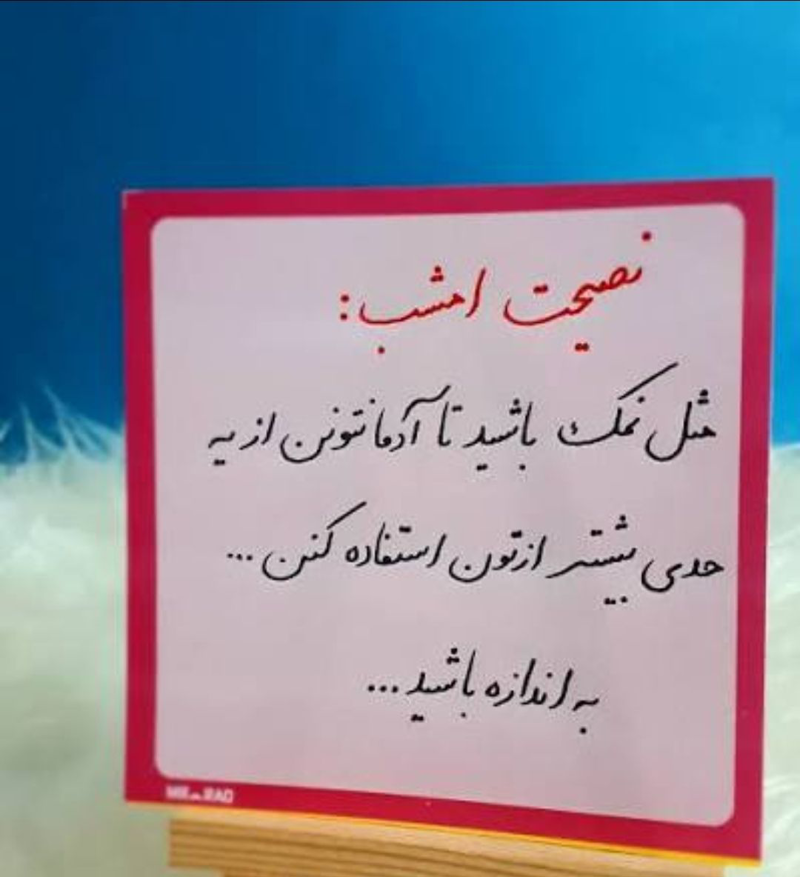 نصیحت امشب:
مثل نمک باشید تا آدما نتونن از یه
حدی بیشتر ازتون استفاده کنن...
به اندازه باشید...